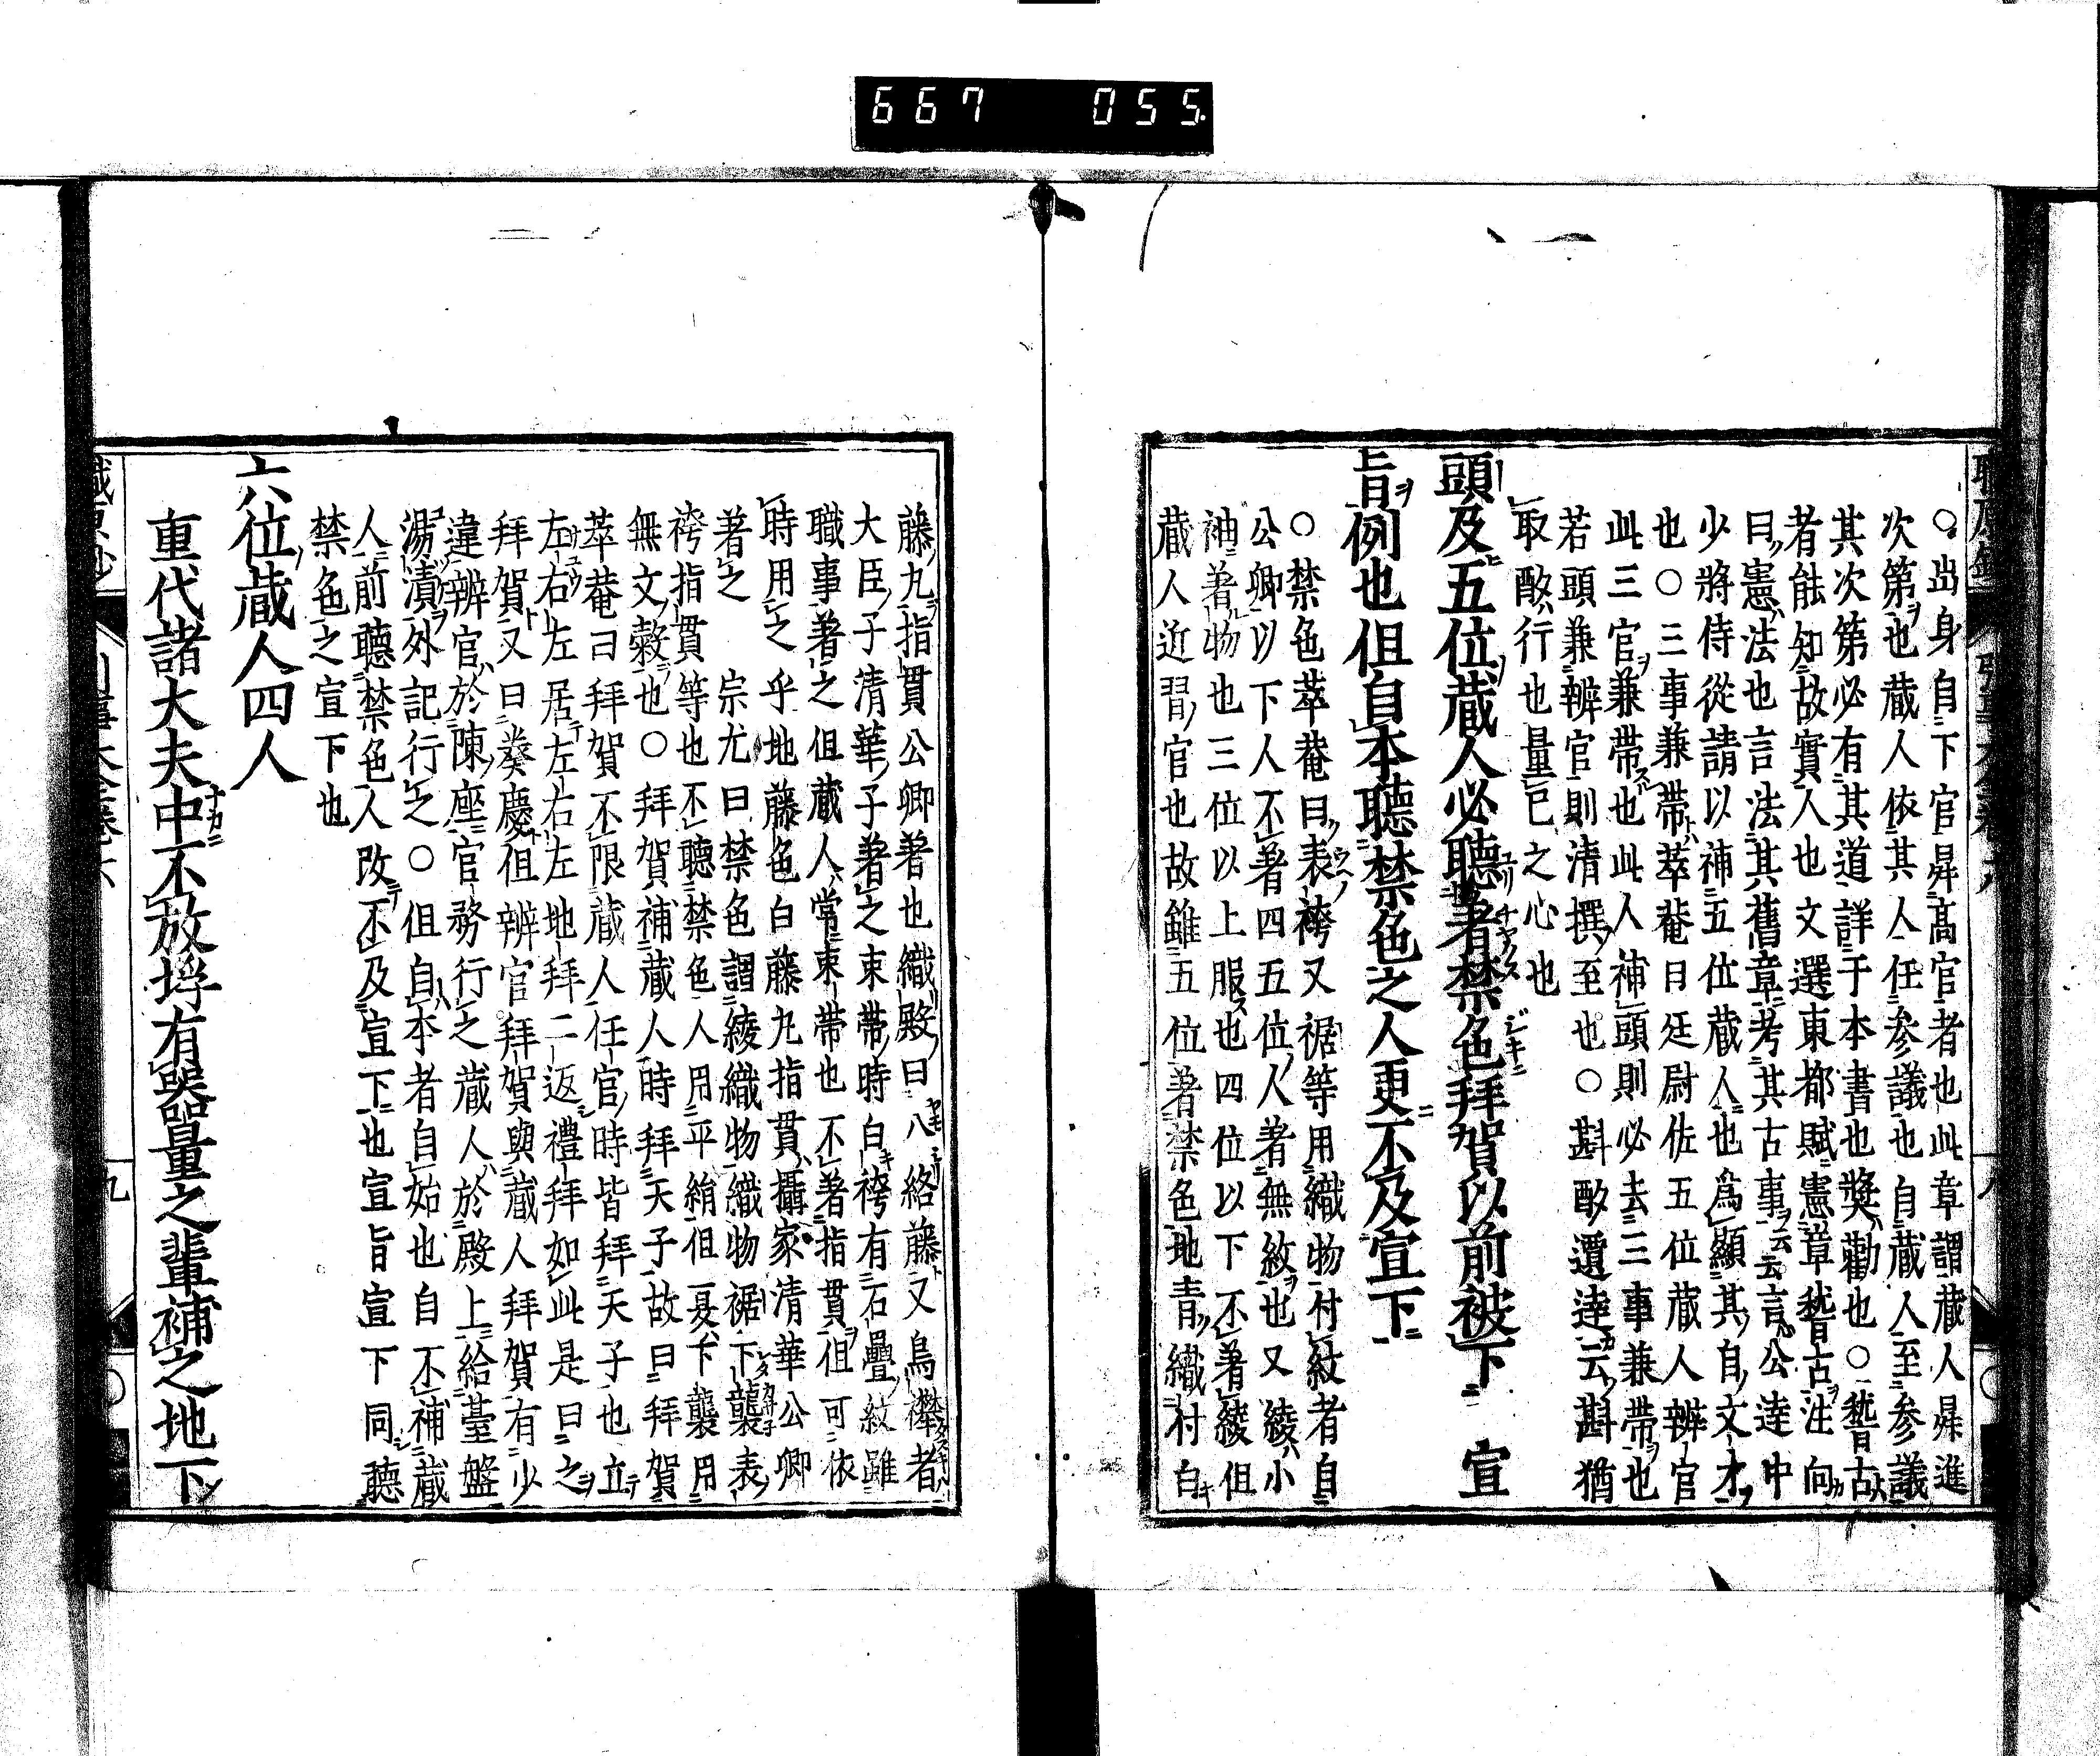 667 055
○出身自下官昇高官者也此章謂蔵人昇進
次第也蔵人依其人任参議也自蔵人至参議
其次第必有其道詳于本書也奬勸也○稽古
者能知故實人也文選東都賦憲章稽古注向
曰憲法也言法其舊章考其古事云云言公達中
少將侍從請以補五位蔵人也為顯其自文才
也○三事兼帯萃菴曰廷尉佐五位蔵人辨官
此三官兼帯也此人補頭則必去三事兼帯也
若頭兼辨官則清撰至也○斟酌還達云斟猶
取酌行也量已之心也
頭及五位蔵人必聽著禁色拜賀以前被下 宣
旨例也但自本聽禁色之人更不及宣下
○禁色萃菴曰表袴又裾等用織物付紋者自
公卿以下人不著四五位人著無紋也又綾小
袖著物也三位以上服也四位以下不著綾但
蔵人近習官也故雖五位著禁色地青織付白
藤丸指貫公卿著也織殿曰八絡藤又鳥襷者
大臣子清華子著之束帶時白袴有石疊紋雖
職事著之但蔵人常束帶也不著指貫但可依
時用之乎地藤色白藤丸指貫攝家清華公卿
著之 宗尤曰禁色謂綾織物織物裾下襲表
袴指貫等也不聽禁色人用平絹但夏下襲用
無文縠也○拜賀補蔵人時拜天子故曰拜賀
萃菴曰拜賀不限蔵人任官時皆拜天子也立
左右左居左右左地拜二返禮拜如此是曰之
拜賀又曰奏慶但辨官拜賀與蔵人拜賀有少
違辨官於陳座官務行之蔵人於殿上給臺盤
湯漬外記行之○但自本者自始也自不補蔵
人前聽禁色人改不及宣下也宣旨宣下同聽
禁色之宣下也
六位蔵人四人
重代諸大夫中不放埒有器量之輩補之地下